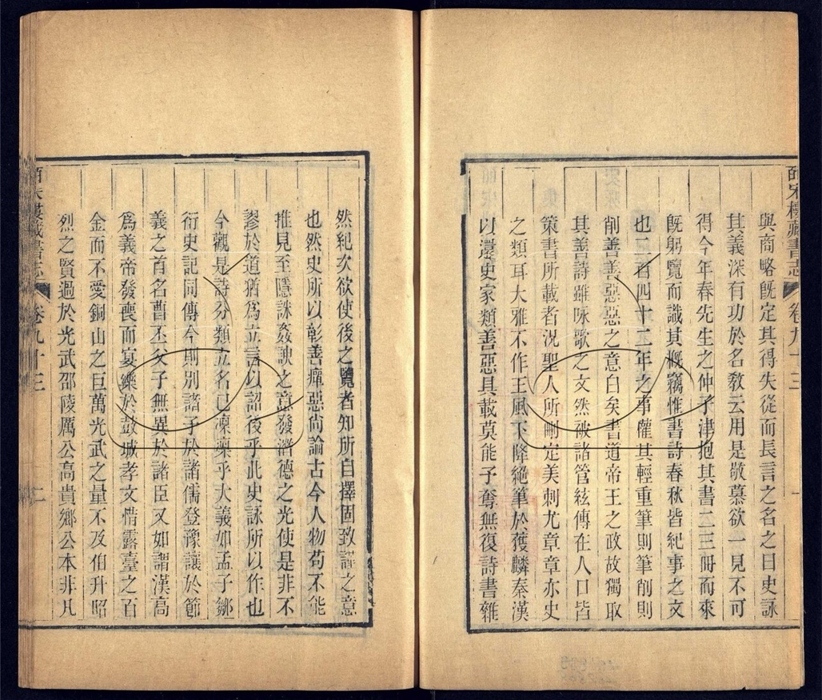 皕宋樓藏書志
卷九十三
一
與商略旣定其得失從而長言之名之曰史詠
其義深有功於名敎云用是敬慕欲一見不可
得今年春先生之仲子津抱其書二三冊而來
旣躬覽而識其槪竊惟書詩春秋皆紀事之文
也二百四十二年之事權其輕重筆則筆削則
削善善惡惡之意白矣書道帝王之政故獨取
其善詩雖咏歌之文然被諸管絃傳在人口皆
策書所載者況聖人所刪定美刺尤章章亦史
之類耳大雅不作王風下降絶筆於獲麟秦漢
以還史家類善惡具載莫能予奪無復詩書雜
然紀次欲使後之覽者知所自擇固致謹之意
也然史所以彰善癉惡尙論古今人物苟不能
推見至隱誅姦諛之意發潛德之光使是非不
謬於道猶爲立言以詔後乎此史詠所以作也
今觀是詩分類立名已凜凜乎大義如孟子鄒
衍史記同傳今則別諸子於諸儒登豫讓於節
義之首名曹丕父子無異於諸臣又如謂漢高
爲義帝發喪而宴樂於彭城孝文惜露臺之百
金而不愛銅山之巨萬光武之量不及伯升昭
烈之賢過於光武邵陵厲公高貴鄉公本非凡
皕宋樓藏書志
卷九十三
二